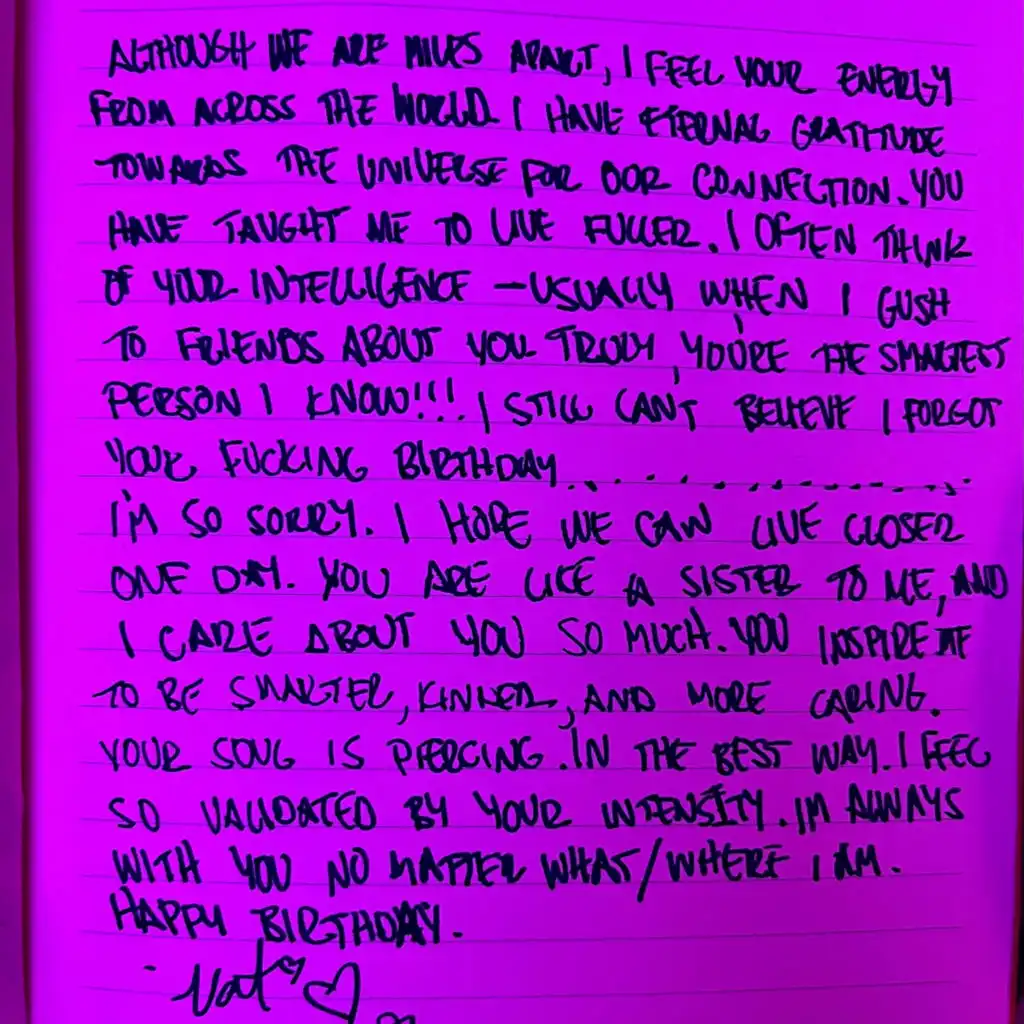 ALTHOUGH WE ARE MILES APART, I FEEL YOUR ENERGY
FROM ACROSS THE WORLD. I HAVE ETERNAL GRATITUDE
TOWARDS THE UNIVERSE FOR OUR CONNECTION. YOU
HAVE TAUGHT ME TO LIVE FULLER. I OFTEN THINK
OF YOUR INTELLIGENCE – USUALLY WHEN I GUSH
TO FRIENDS ABOUT YOU. TRULY, YOU'RE THE SMARTEST
PERSON I KNOW!!!. I STILL CAN'T BELIEVE I FORGOT
YOUR FUCKING BIRTHDAY..................
I'M SO SORRY. I HOPE WE CAN LIVE CLOSER
ONE DAY. YOU ARE LIKE A SISTER TO ME, AND
I CARE ABOUT YOU SO MUCH. YOU INSPIRE ME
TO BE SMARTER, KINDER, AND MORE CARING.
YOUR SOUL IS PIERCING. IN THE BEST WAY. I FEEL
SO VALIDATED BY YOUR INTENSITY. I'M ALWAYS
WITH YOU NO MATTER WHAT/WHERE I AM.
HAPPY BIRTHDAY.
- Nat